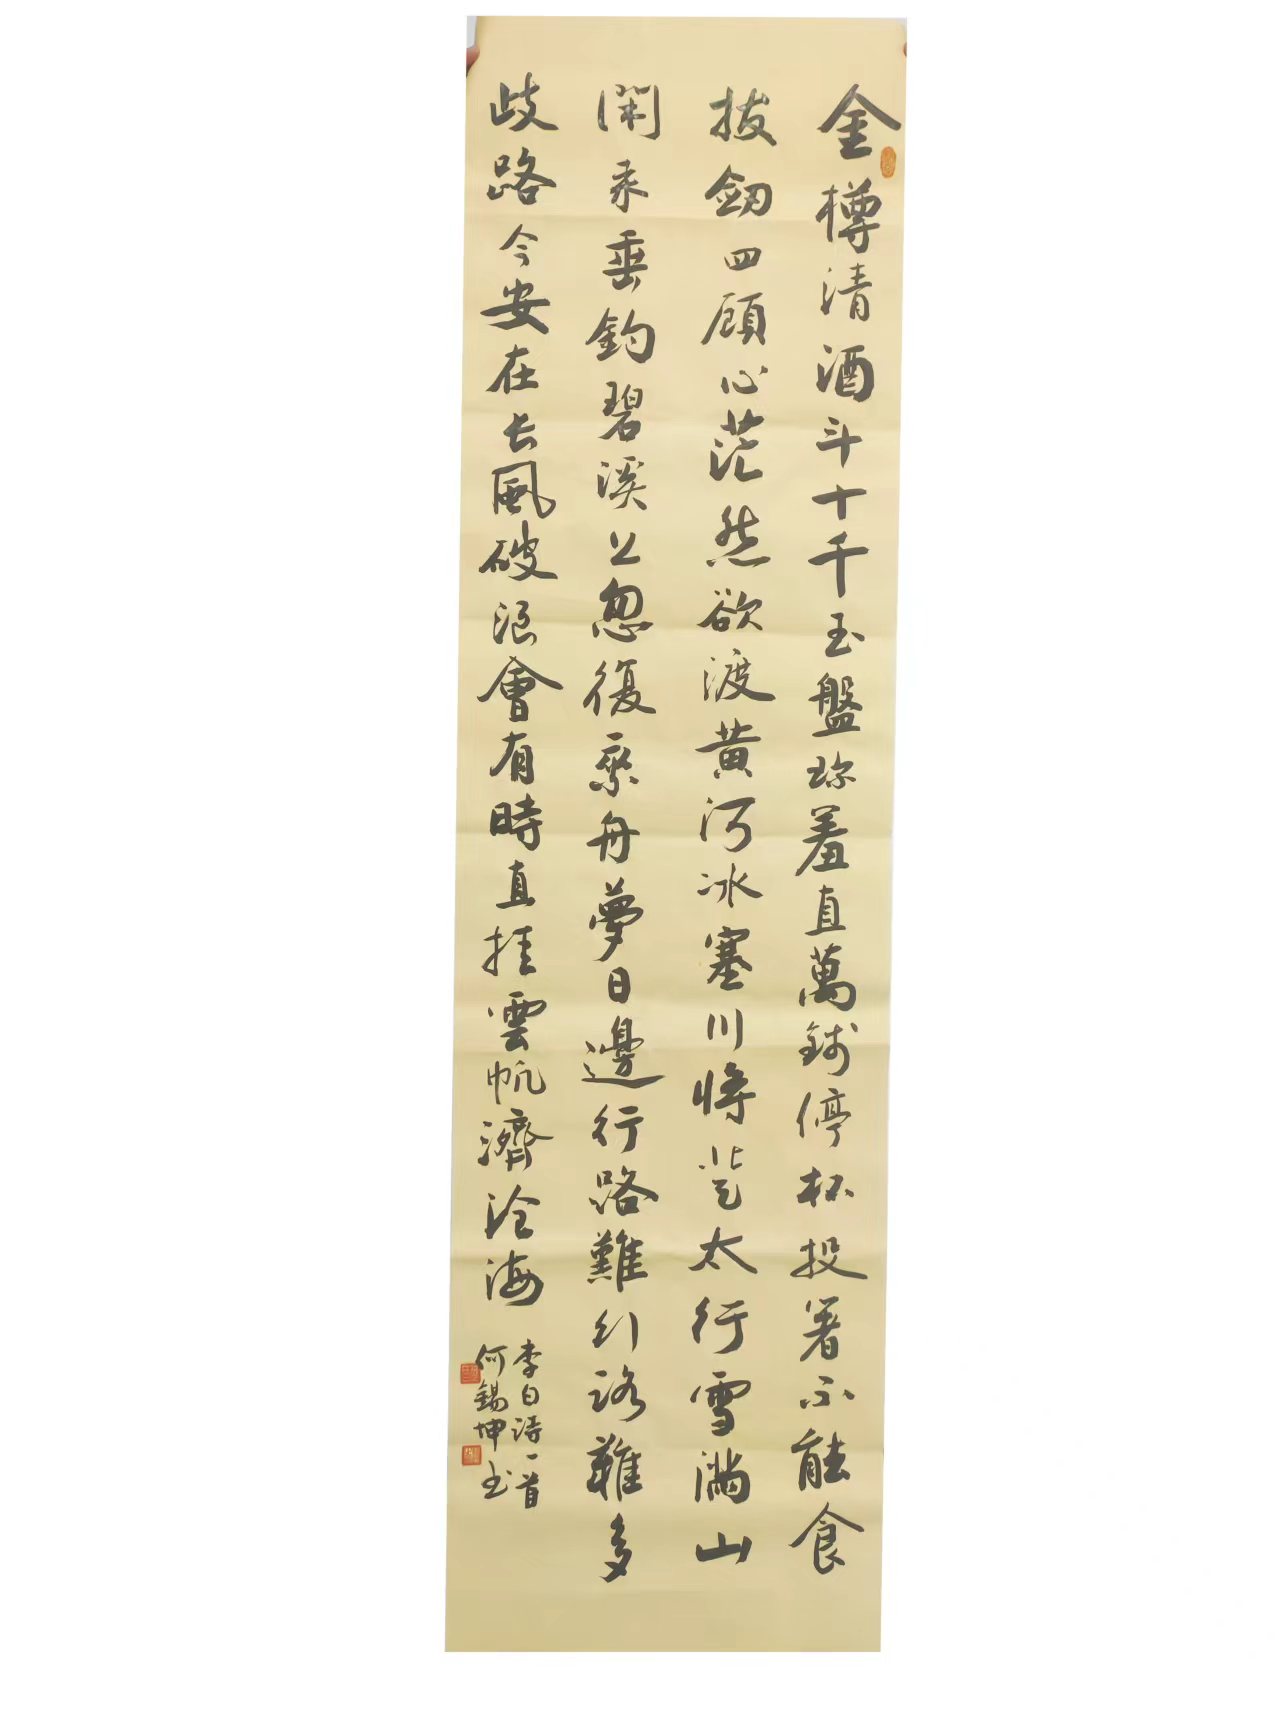 金樽清酒斗十千玉盤珍羞直萬錢停杯投箸不能食
拔劒四顧心茫然欲渡黄河冰塞川將登太行雪滿山
閑來垂釣碧溪上忽復乘舟夢日邊行路難行路難多
歧路今安在長風破浪會有時直挂雲帆濟滄海
李白詩一首
何錫坤书